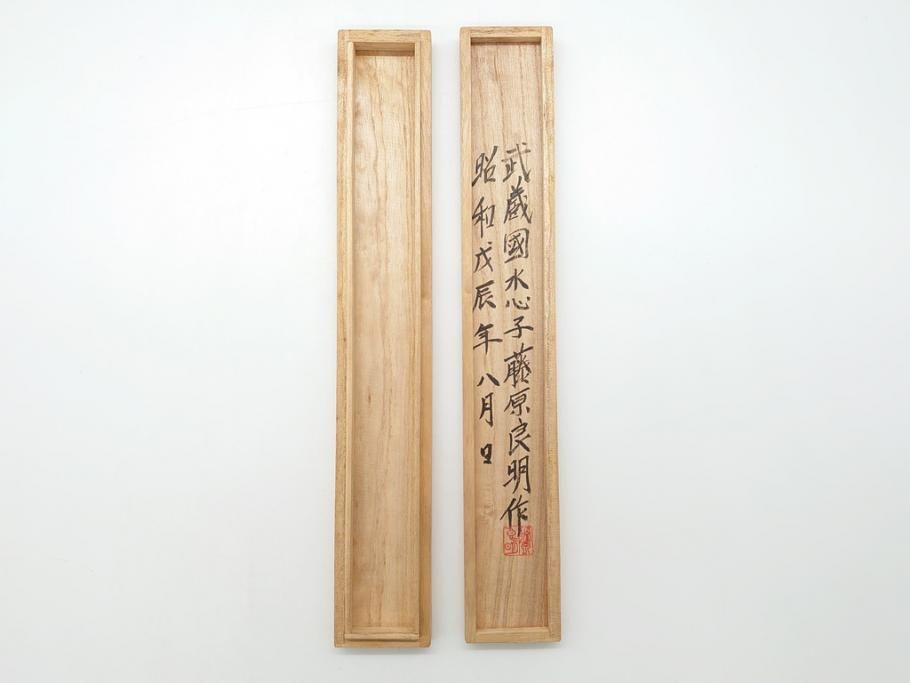 武蔵國水心子藤原良明作
昭和戊辰年八月日